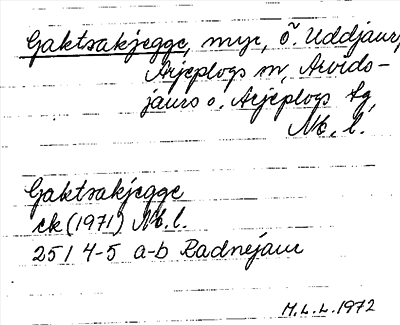 Gaktsakjegge, myr, ö. Uddjaur,
Arjeplogs sn, Arvids-
jaurs o. Arjeplogs tg,
Nb. l.
Gaktsakjegge
ek (1971) Nb. l.
25 I 4-5 a-b Radnejaur
M. L. L. 1972